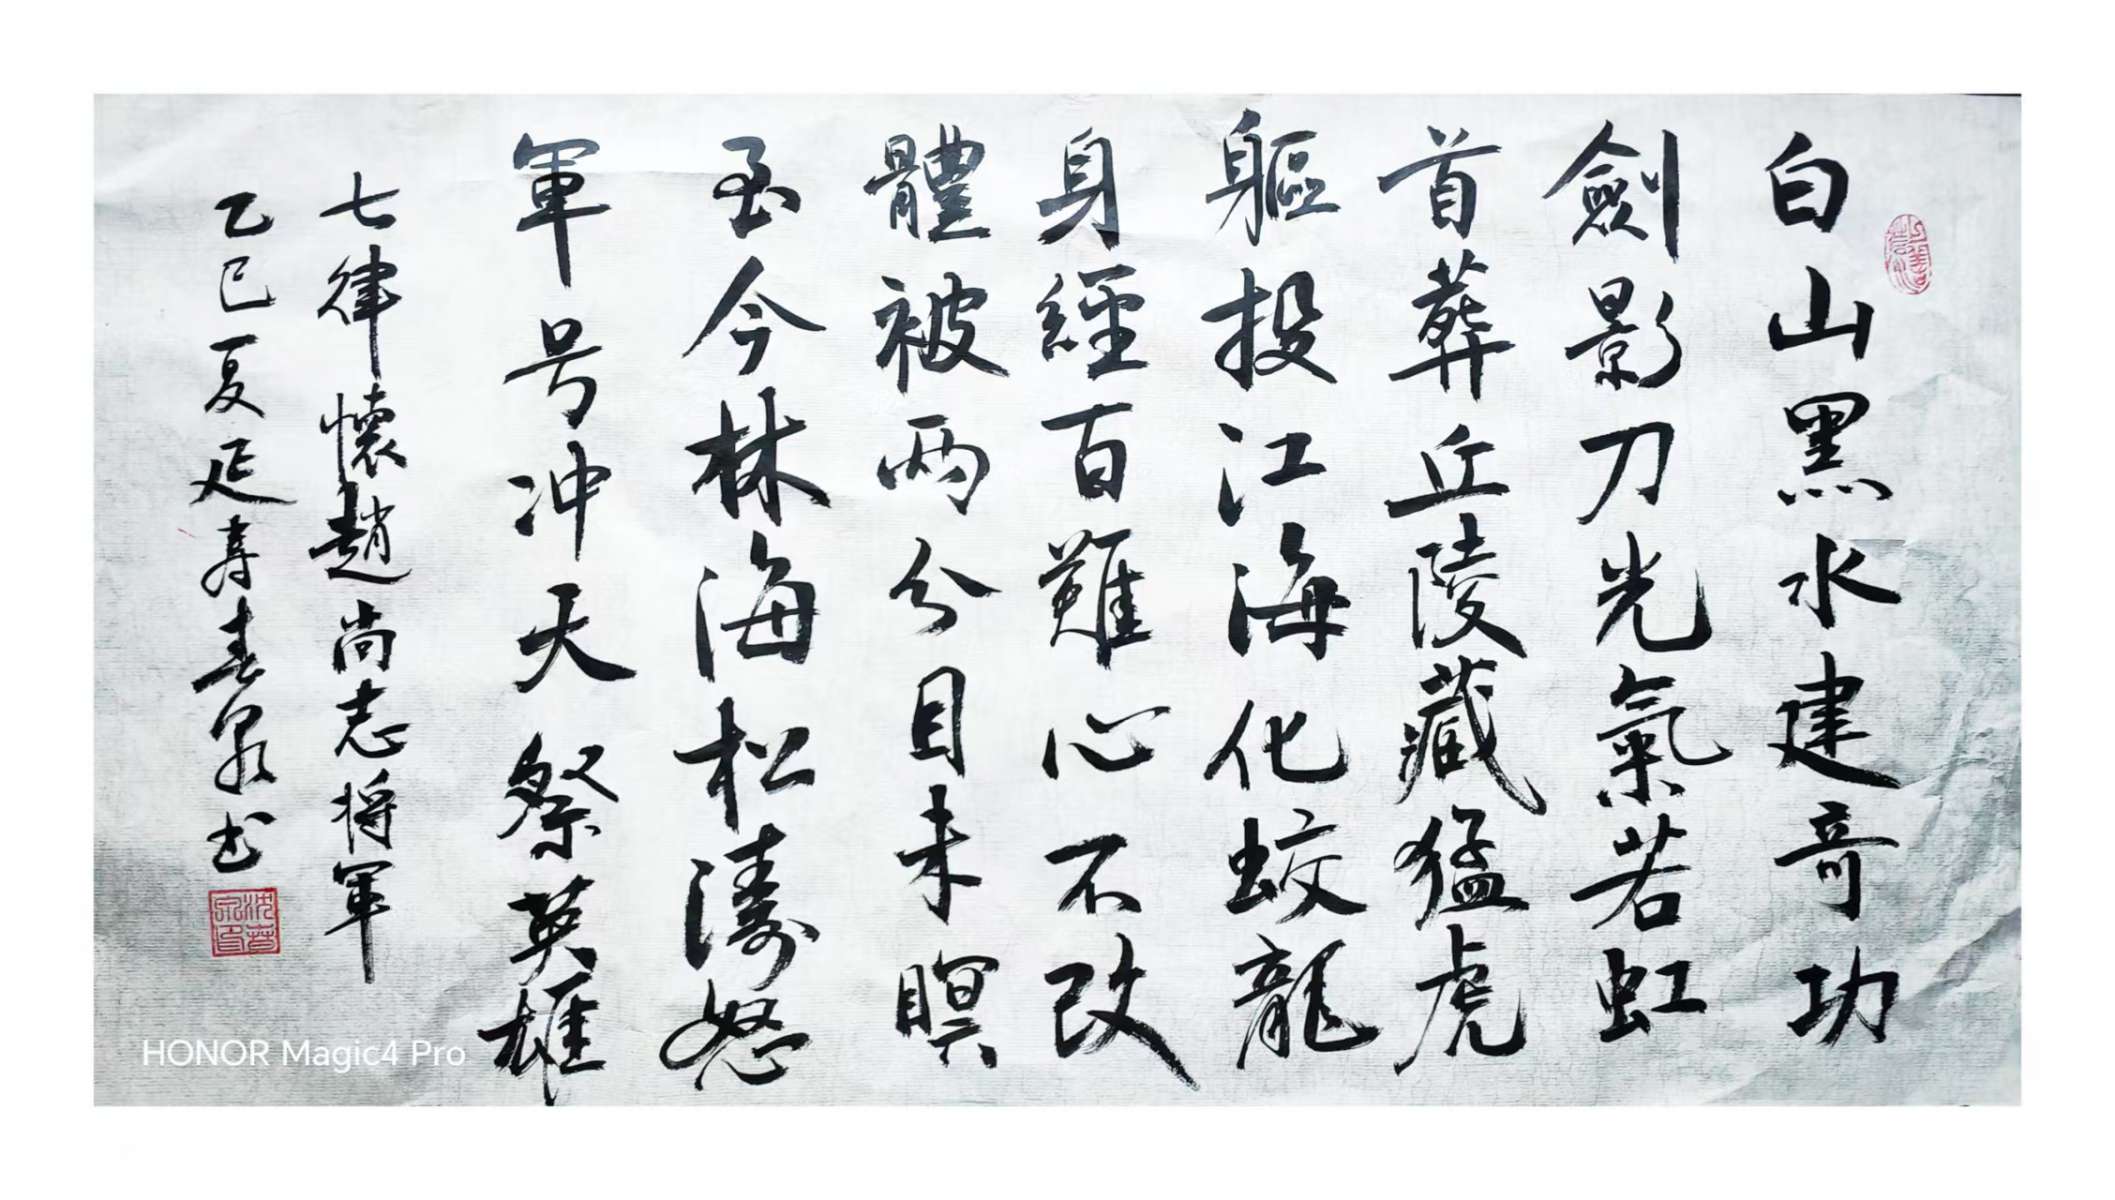 白山黑水建奇功
劍影刀光氣若虹
首葬丘陵藏猛虎
軀投江海化蛟龍
身經百難心不改
體被兩分目未瞑
至今林海松濤怒
軍号冲天祭英雄
七律懷趙尚志將軍
乙巳夏延壽春泉书
HONOR Magic4 Pro